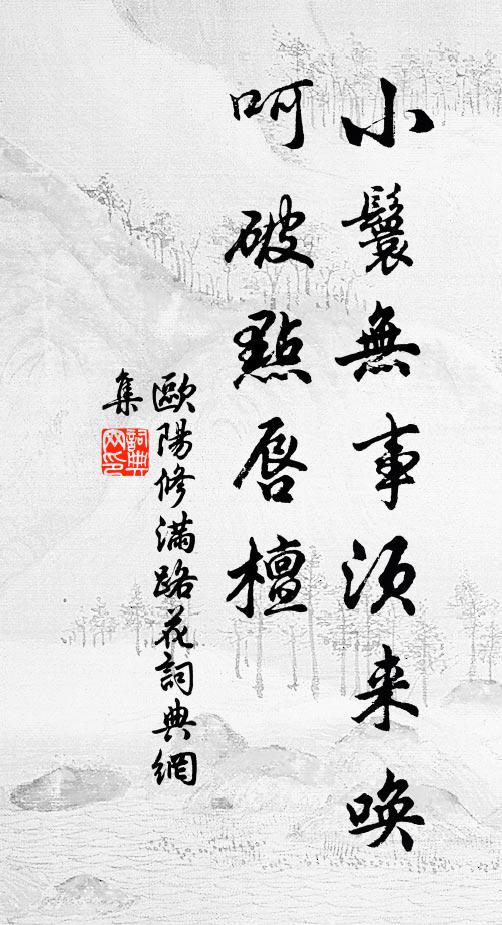 小鬟無事須来喚
呵破點唇檀
歐陽修滿路花詞典網
集
詞典網印